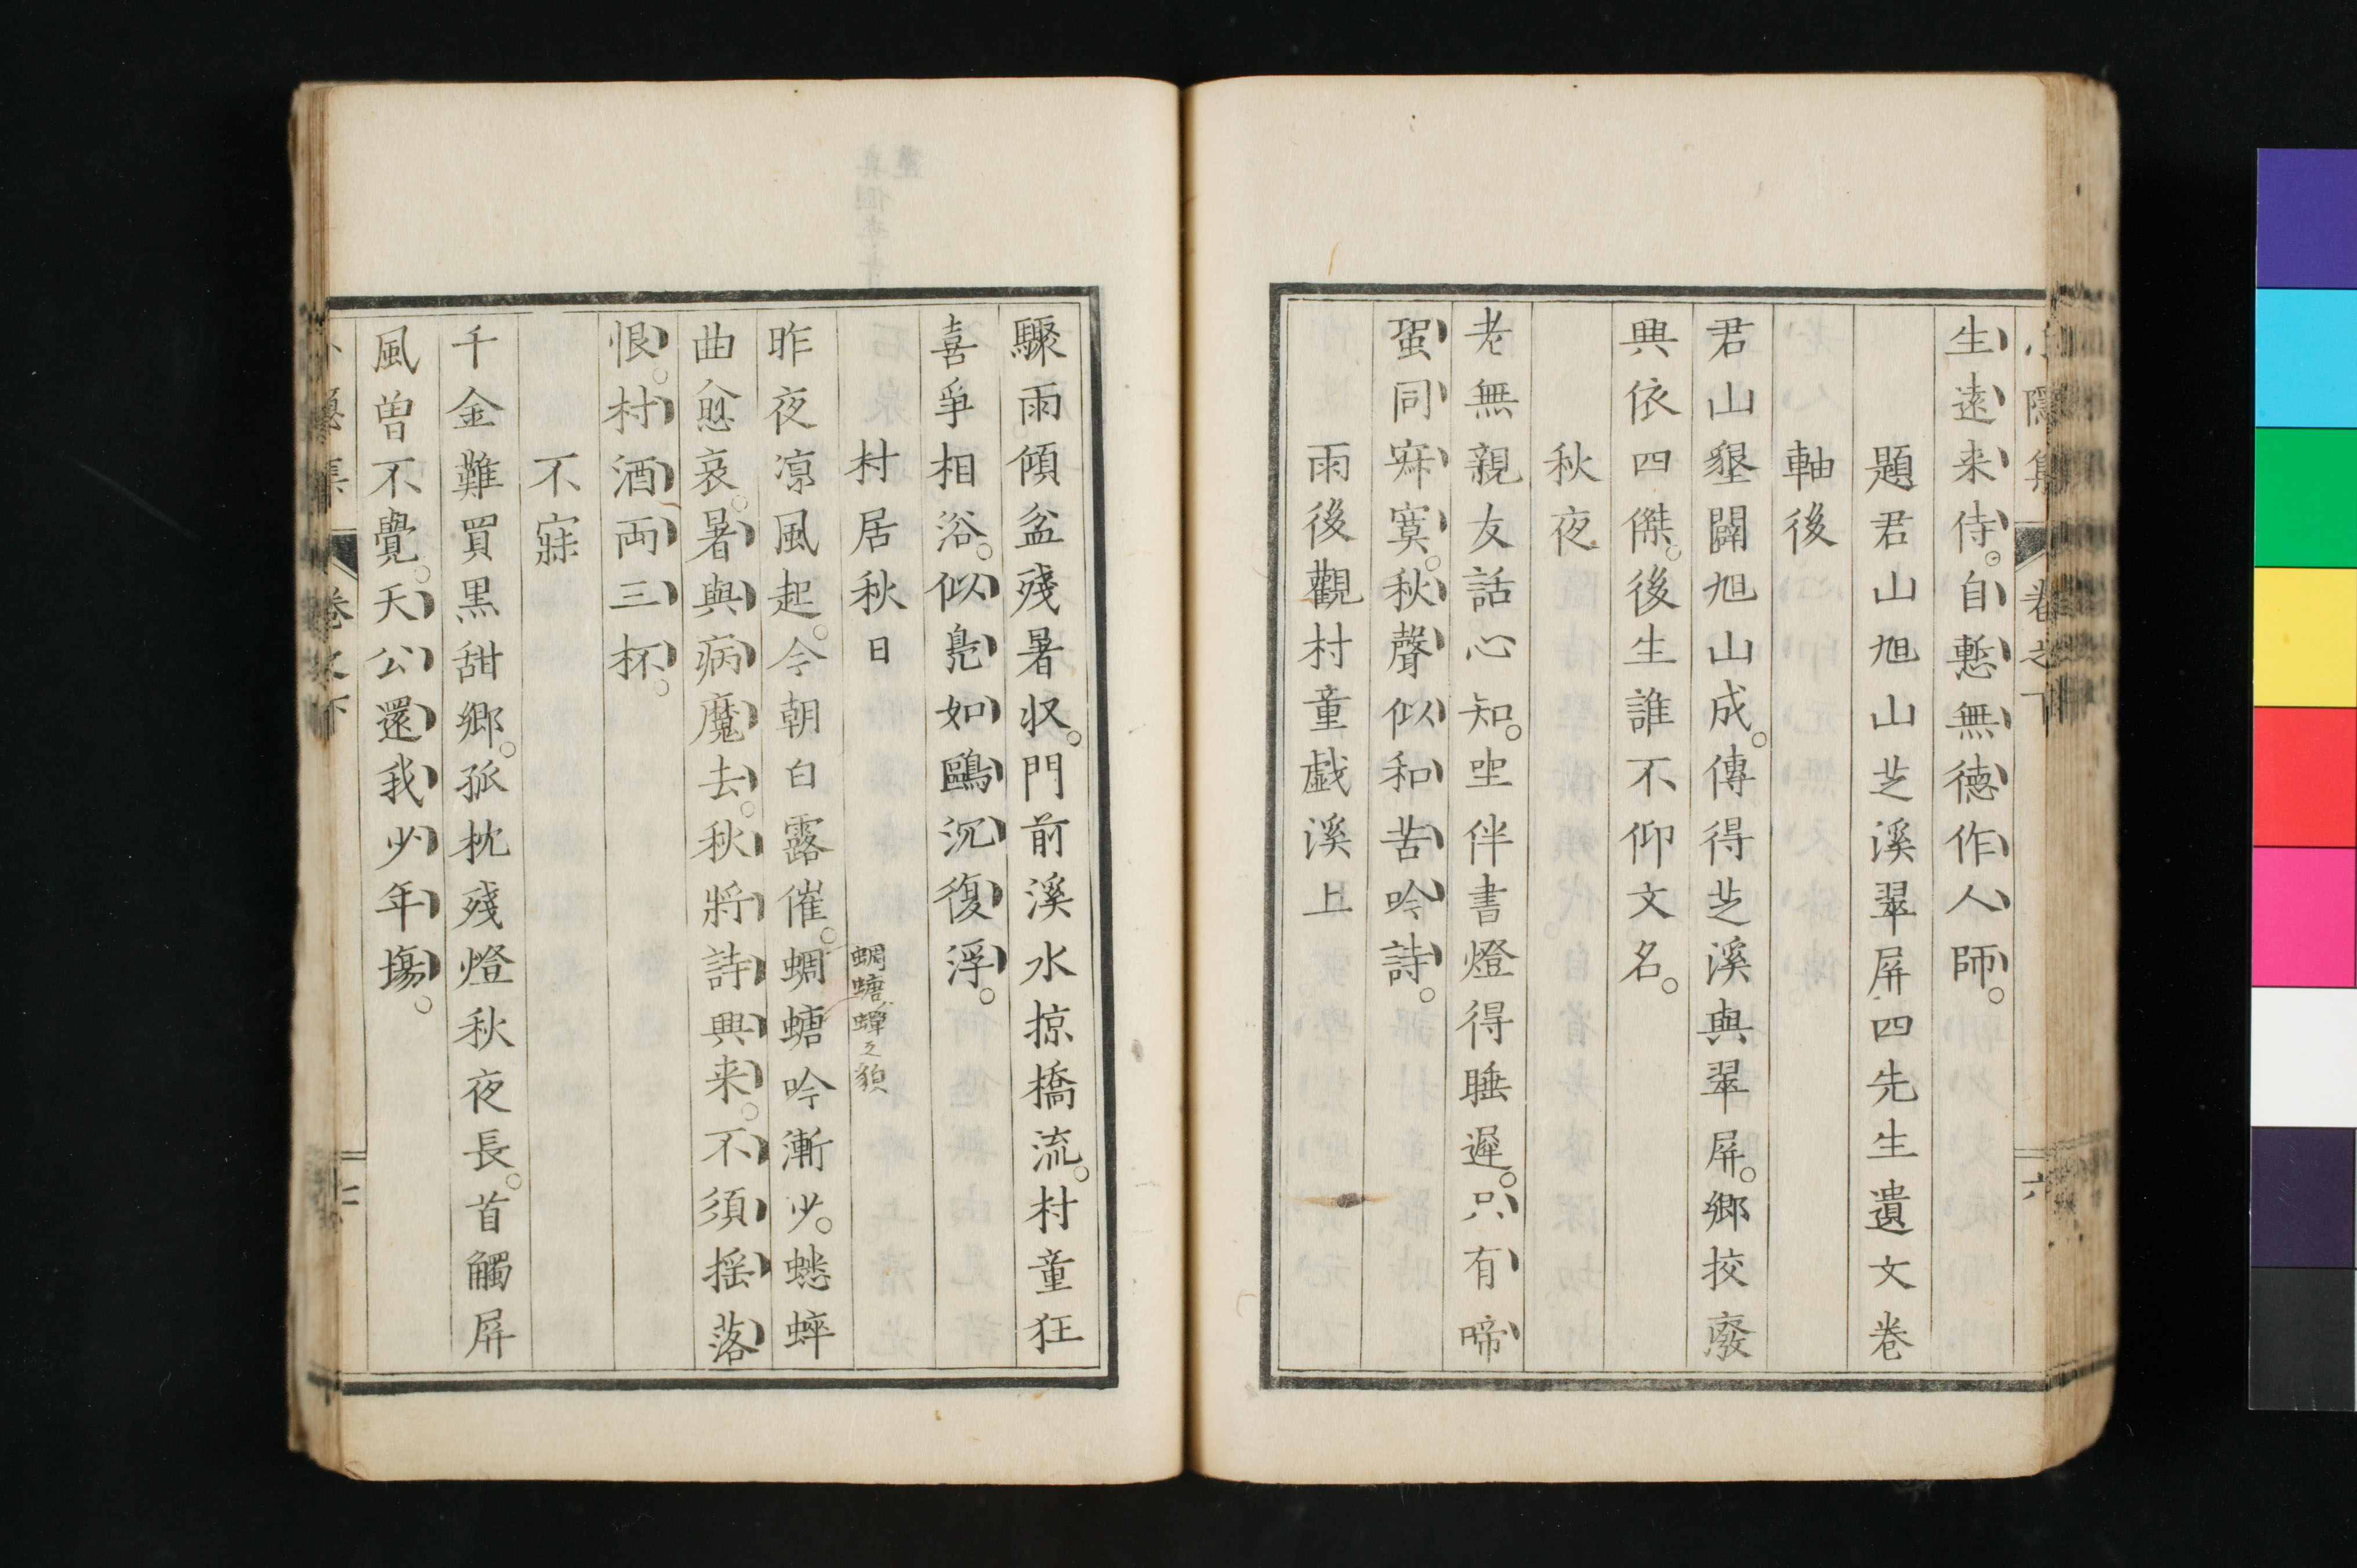 生遠来侍自慙無德作人師
題君山旭山芝溪翠屏四先生遺文卷
軸後
君山墾闢旭山成傳得芝溪與翠屏鄉挍廢
興依四傑後生誰不仰文名
秋夜
老無親友話心知坐伴書燈得睡遲只有啼
蛩同寂寞秋聲似和苦吟詩
雨後觀村童戯溪上
驟雨傾盆殘暑収門前溪水掠橋流村童狂
喜爭相浴似鳧如鷗沉復浮
村居秋日
蜩螗蟬之類
昨夜凉風起今朝白露催蜩螗吟漸少蟋蟀
曲愈哀暑與病魔去秋將詩興来不須揺落
恨村酒両三杯
不寐
千金難買黒甜鄉孤枕殘燈秋夜長首觸屏
風曽不覺天公還我少年塲
卷之下